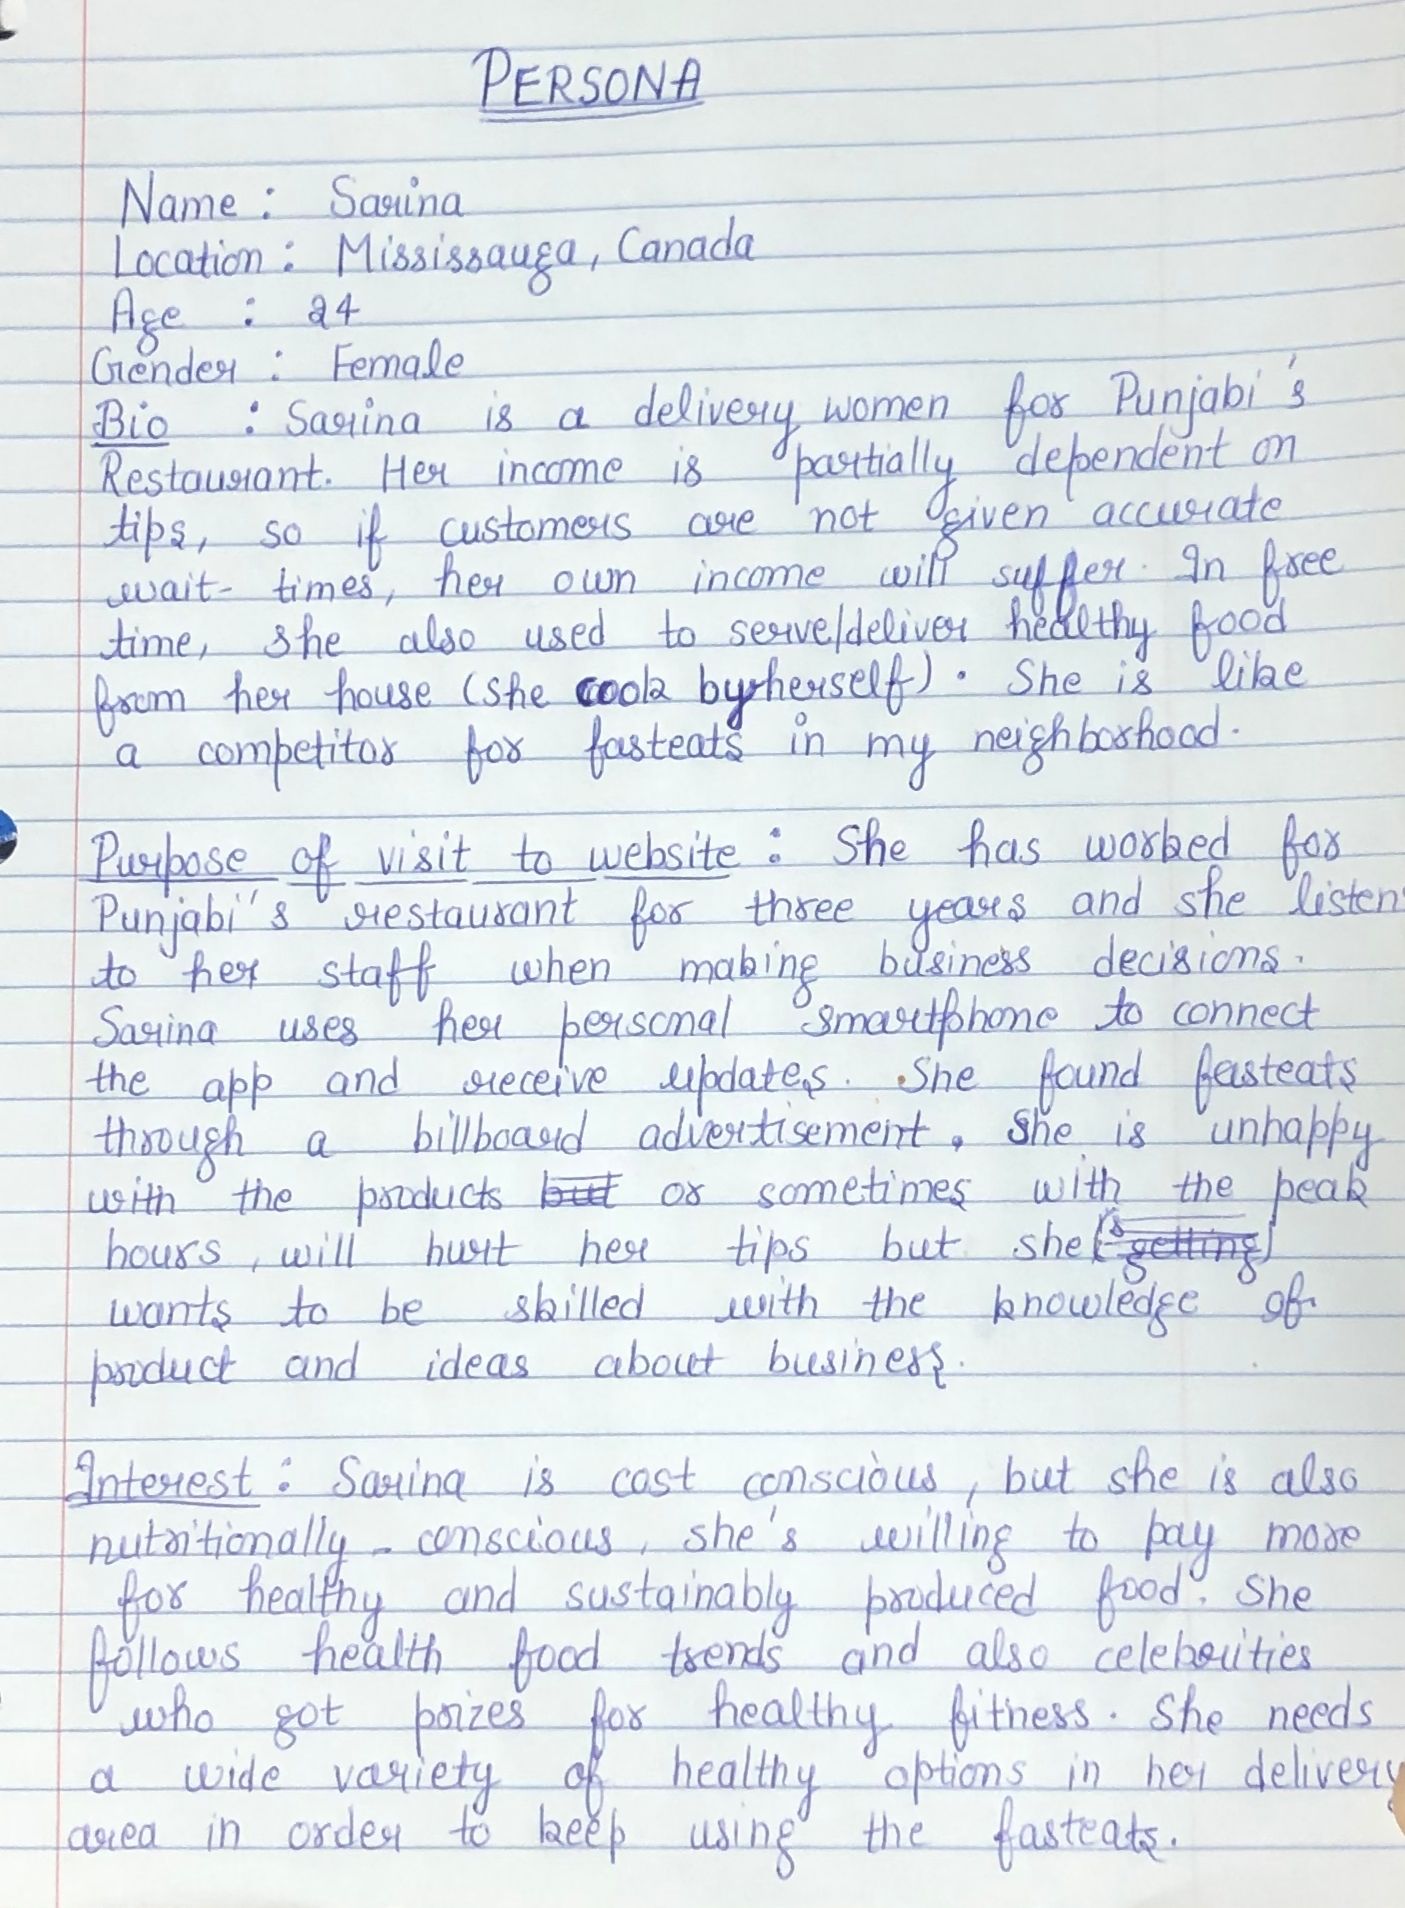 PERSONA
Name : Sarina
Location : Mississauga, Canada
Age : 24
Gender : Female
Bio : Sarina is a delivery women for Punjabi's
Restaurant. Her income is partially dependent on
tips, so if customers are not given accurate
wait- times, her own income will suffer. In free
time, she also used to serve/deliver healthy food
from her house (she cook by herself). She is like
a competitor for fasteats in my neighborhood.
Purpose of visit to website : She has worked for
Punjabi''s restaurant for three years and she listen
to her staff when making business decisions.
Sarina uses her personal smartphone to connect
the app and receive updates. She found fasteats
through a billboard advertisement. She is unhappy
with the products but or sometimes with the peak
hours, will hurt her tips but she ('s getting)
wants to be skilled with the knowledge of
product and ideas about business.
Interest : Sarina is cost conscious, but she is also
nutritionally - conscious, she's willing to pay more
for healthy and sustainably produced food. She
follows health food trends and also celebrities
who got prizes for healthy fitness. She needs
a wide variety of healthy options in her delivery
area in order to keep using the fasteats.